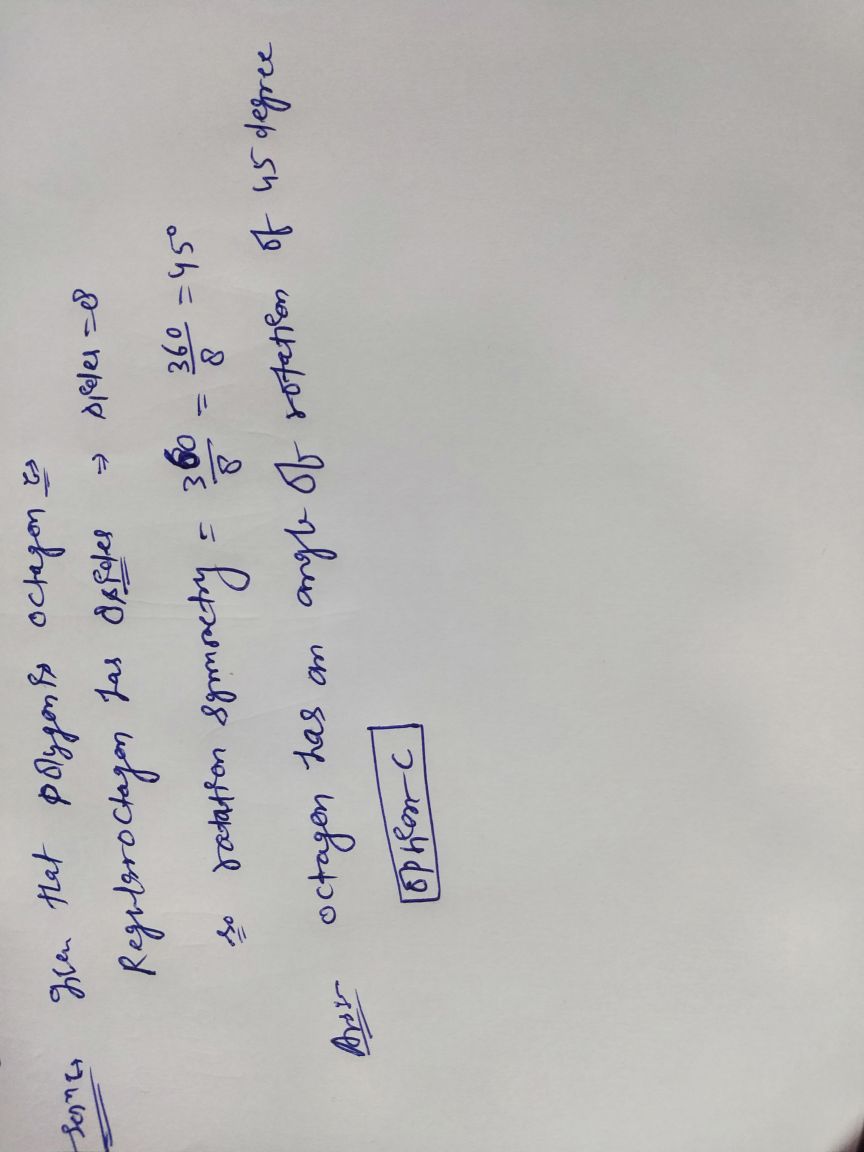 Soln:→ given that polygon is octagon →
Regular octagon has 8 sides ⇒ sides = 8
so rotation symmetry = 360/8 = 360/8 = 45°
Ans:- octagon has an angle of rotation of 45 degree
option-C